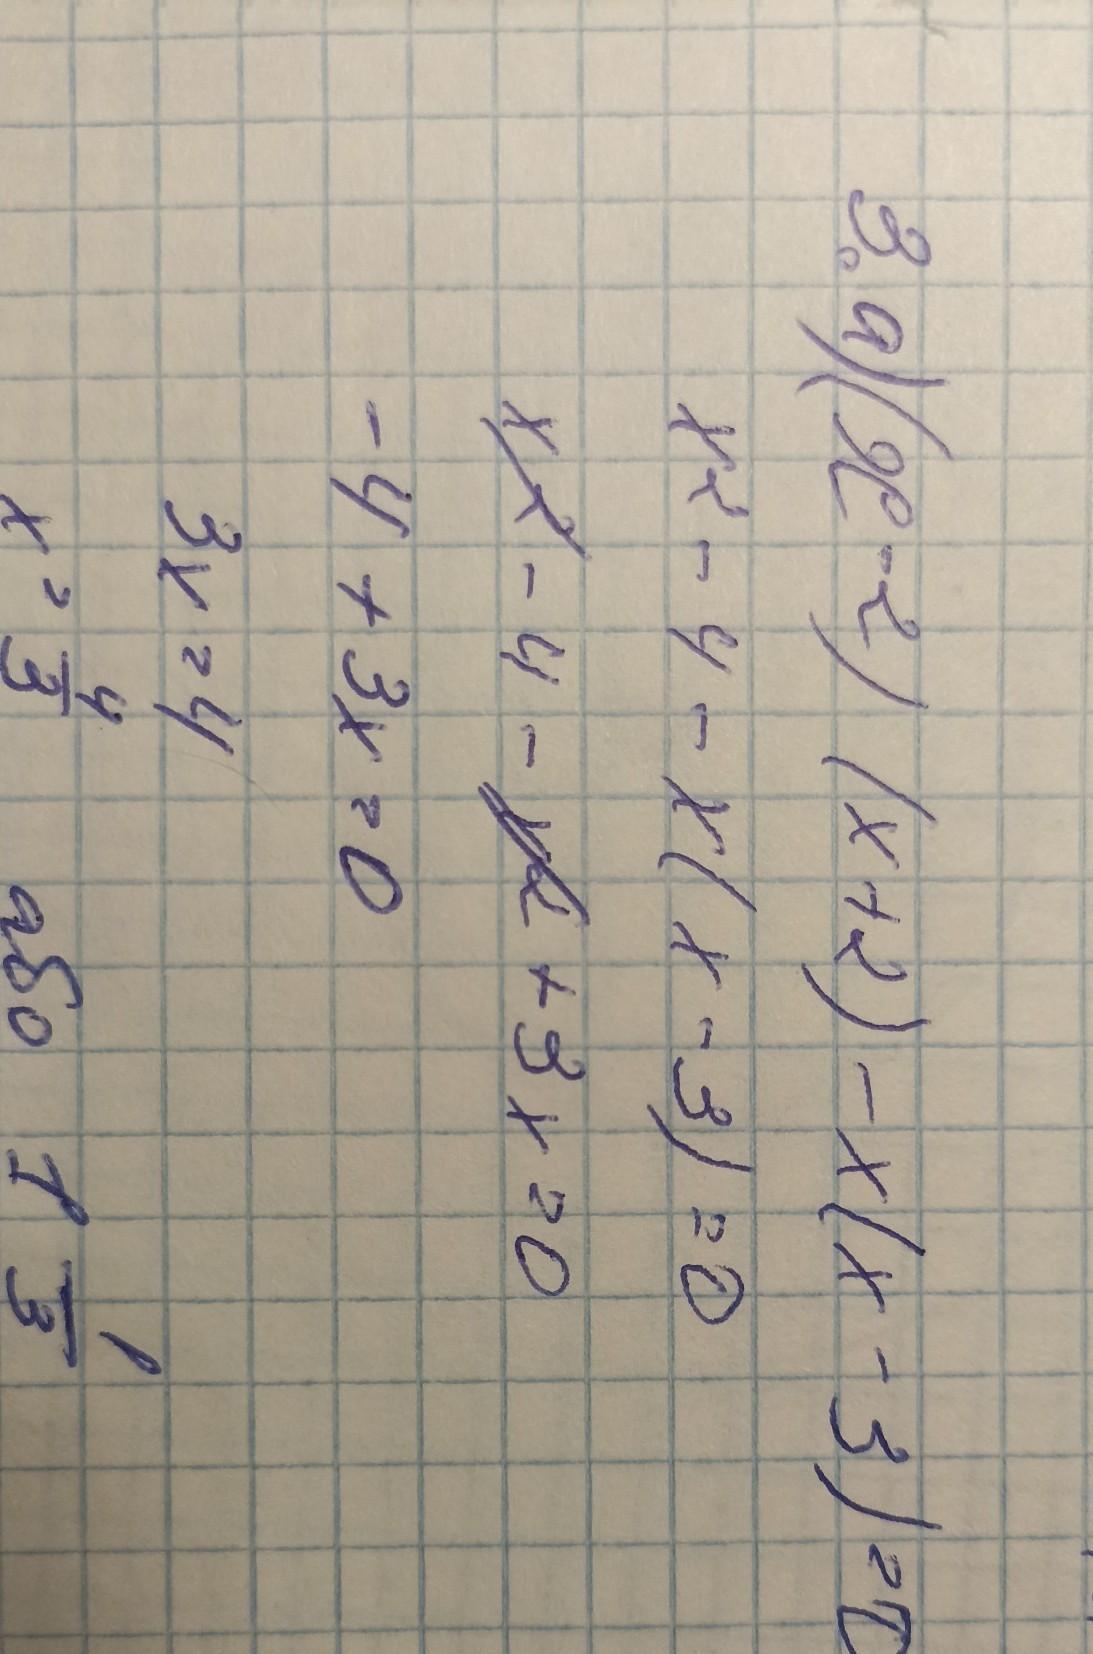 3. а) (x - 2) (x + 2) - x(x - 3) = 0
x² - 4 - x(x - 3) = 0
x² - 4 - x² + 3x = 0
-4 + 3x = 0
3x = 4
x = 4/3 або 1 1/3